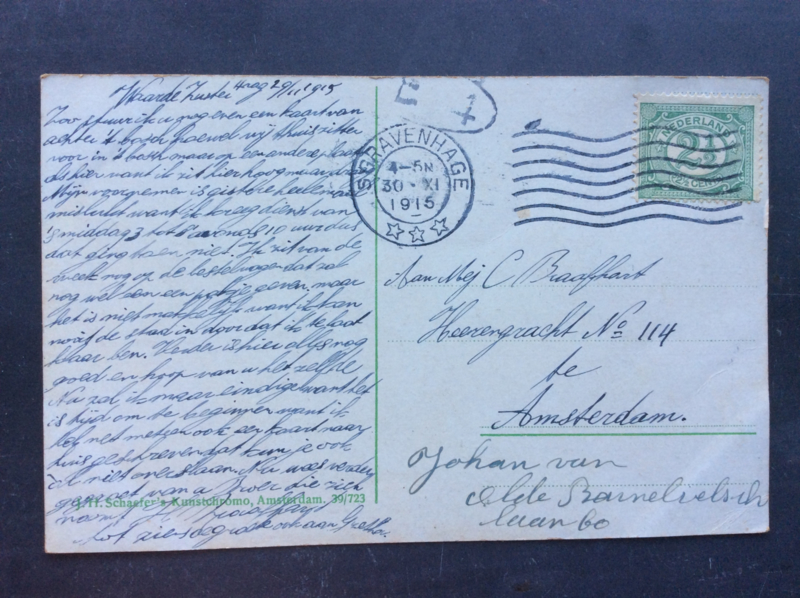 Haag 29/11 1915
Waarde Zuster
Zoo stuur ik u nog even een kaart van
achter 't bosch hoewel wij thuis zitten
voor in 't bosch maar op een andere
dus hier want ik zit hier hoog
Mijn voornemen is gisteren heelemaal
mislukt want ik kreeg dienst van
's middag 3 tot 's avonds 10 uur dus
dat ging toen niet. Ik zit van de
week nog op de bestelwagen dat zal
nog wel een een potje geven, maar
het is niet makkelijk want ik kan
nooit de stad in door dat ik te laat
klaar ben. Verder is hier alles nog
goed en hoop van u het zelfde
Nu zal ik maar eindige want het
is tijd om te beginnen want ik
heb net meteen ook een kaart naar
huis geschreven dat kun je ook
niet overslaan. Nu was verder
gegroet van u Broer die zich
noemt
tot ziens de groete ook aan
J.H. Schaefer's Kunstchromo, Amsterdam. 39/723
4
'S GRAVENHAGE
4-5N
30 XI
1915
NEDERLAND
2½
2½ CENT
Aan Mej C Braafhart
Heerengracht No 114
te
Amsterdam.
Johan van
Olde Barnevelsch
laan 60